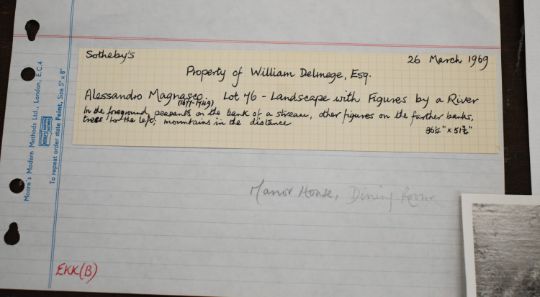 Sotheby's
26 March 1969
Property of William Delmege, Esq.
Alessandro Magnasco. Lot 46 - Landscape with Figures by a River
In the foreground peasants on the bank of a stream, other figures on the farther banks,
trees to the left, mountains in the distance
Manor House, Dining Room
EKK(B)
Moore's Modern Methods Ltd., London, E.C.4
To repeat order state Faint, Size 5" x 8"